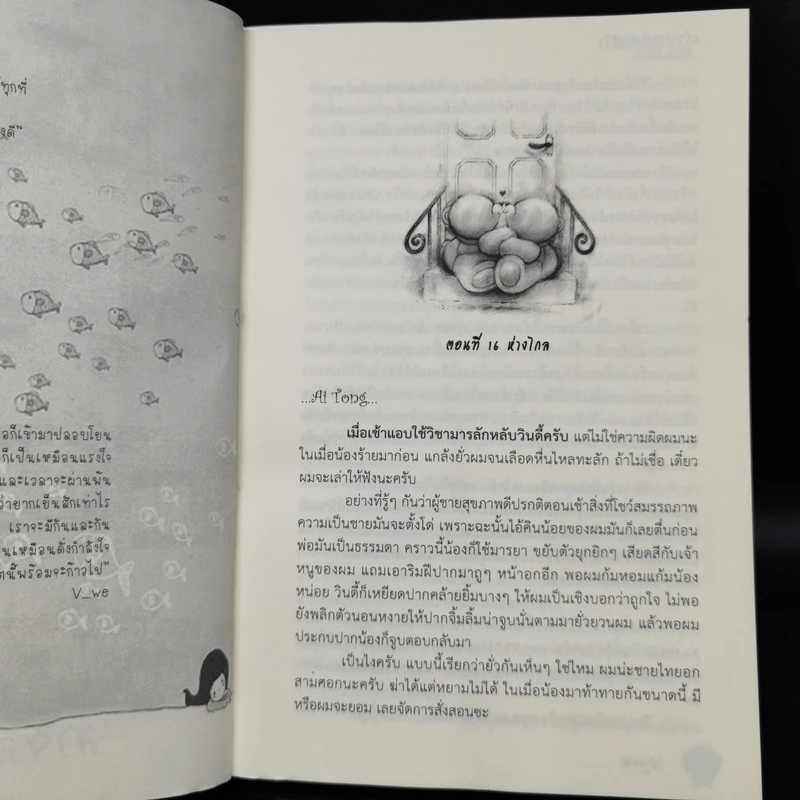 ทุกที่
งดี"
อก็เข้ามาปลอบโยน
ก็เป็นเหมือนแรงใจ
และเวลาจะผ่านพ้น
ว่ายากเย็นสักเท่าไร
เราจะมีกันและกัน
นเหมือนดั่งกำลังใจ
ตนี้พร้อมจะก้าวไป"
V_we
ตอนที่ 16 ห่างไกล
...Ai Tong...
เมื่อเช้าแอบใช้วิชามารลักหลับวินดี้ครับ แต่ไม่ใช่ความผิดผมนะ
ในเมื่อน้องร้ายมาก่อน แกล้งยั่วผมจนเลือดหื่นไหลทะลัก ถ้าไม่เชื่อ เดี๋ยว
ผมจะเล่าให้ฟังนะครับ
อย่างที่รู้ๆ กันว่าผู้ชายสุขภาพดีปรกติตอนเช้าสิ่งที่โชว์สมรรถภาพ
ความเป็นชายมันจะตั้งโด่ เพราะฉะนั้นไอ้คินน้อยของผมมันก็เลยตื่นก่อน
พ่อมันเป็นธรรมดา คราวนี้น้องก็ใช้มารยา ขยับตัวยุกยิกๆ เสียดสีกับเจ้า
หนูของผม แถมเอาริมฝีปากมาถูๆ หน้าอกอีก พอผมก้มหอมแก้มน้อง
หน่อย วินดี้ก็เหยียดปากคล้ายยิ้มบางๆ ให้ผมเป็นเชิงบอกว่าถูกใจ ไม่พอ
ยังพลิกตัวนอนหงายให้ปากจิ้มลิ้มน่าจูบนั่นตามมายั่วยวนผม แล้วพอผม
ประกบปากน้องก็จูบตอบกลับมา
เป็นไงครับ แบบนี้เรียกว่ายั่วกันเห็นๆ ใช่ไหม ผมน่ะชายไทยอก
สามศอกนะครับ ฆ่าได้แต่หยามไม่ได้ ในเมื่อน้องมาท้าทายกันขนาดนี้ มี
หรือผมจะยอม เลยจัดการสั่งสอนซะ